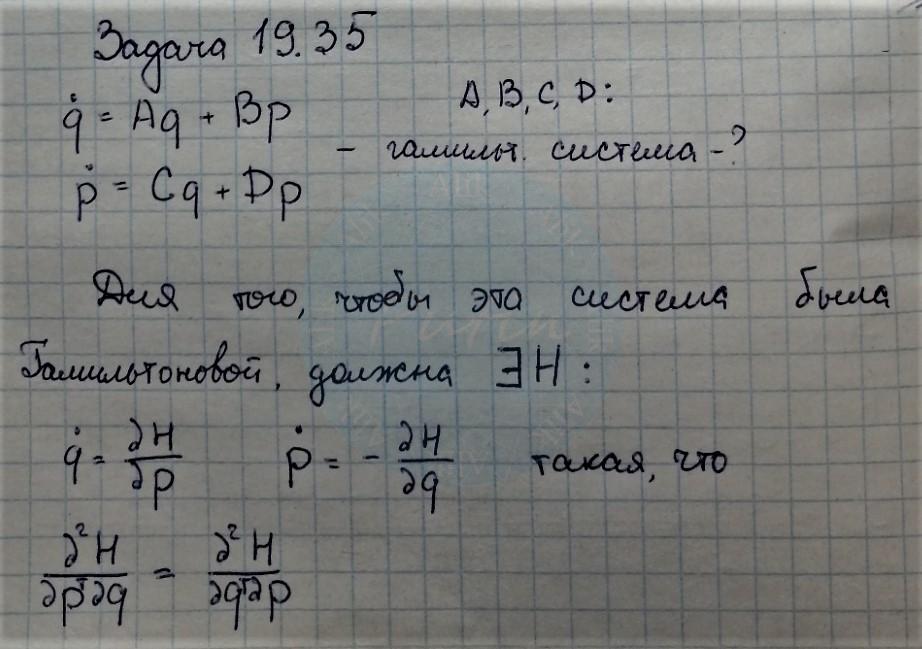 Задача 19.35
q̇ = Aq + Bp
A, B, C, D:
- гамильт. система -?
ṗ = Cq + Dp
Для того, чтобы эта система была
Гамильтоновой, должна ∃H:
q̇ = ∂H/∂p ṗ = - ∂H/∂q такая, что
∂²H/∂pᵀ∂q = ∂²H/∂qᵀ∂p